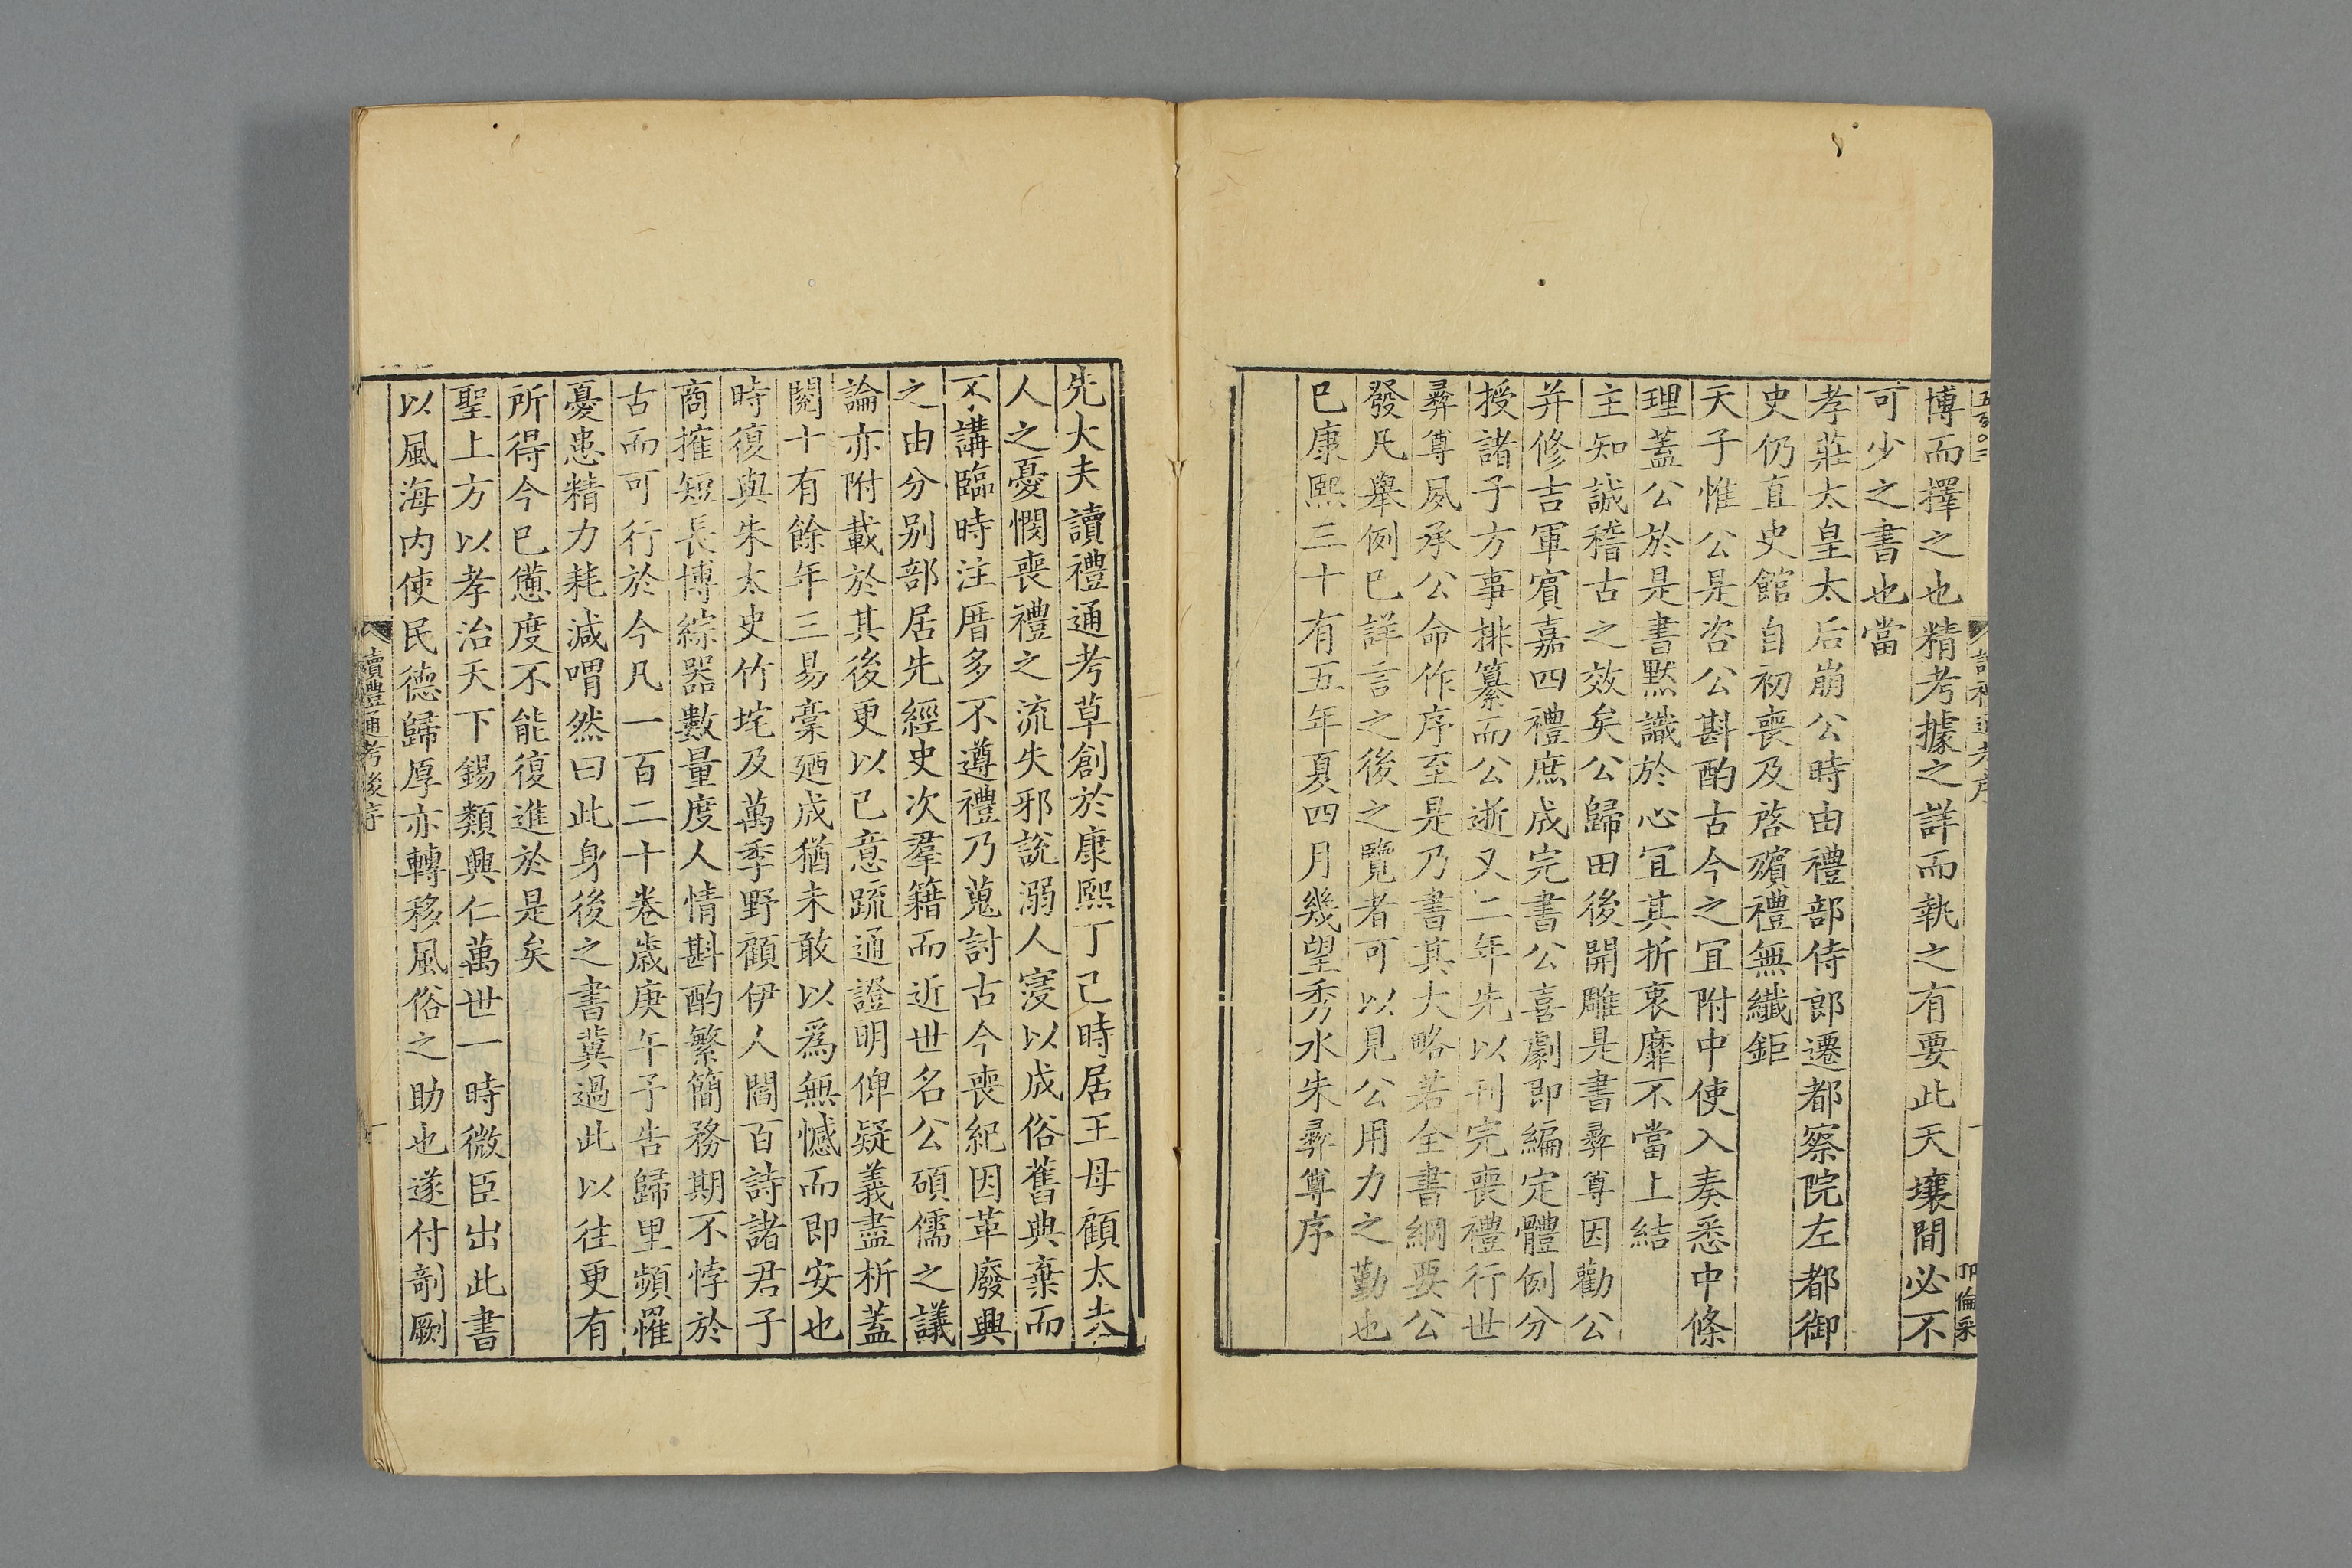 博而擇之也精考據之詳而執之有要此天壤間必不
可少之書也當
孝莊太皇太后崩公時由禮部侍郎遷都察院左都御
史仍直史館自初喪及啓殯禮無纖鉅
天子惟公是咨公斟酌古今之冝附中使入奏悉中條
理蓋公於是書黙識於心冝其折衷靡不當上結
主知誠稽古之效矣公歸田後開雕是書彞尊因勸公
并修吉軍賓嘉四禮庶成完書公喜劇即編定體例分
授諸子方事排纂而公逝又二年先以刊完喪禮行世
彞尊夙承公命作序至是乃書其大略若全書綱要公
發凡舉例巳詳言之後之覽者可以見公用力之勤也
巳康熙三十有五年夏四月幾望秀水朱彞尊序
先大夫讀禮通考草創於康熙丁己時居王母顧太夫
人之憂憫喪禮之流失邪説溺人寖以成俗舊典棄而
不講臨時注厝多不遵禮乃蒐討古今喪紀因革廢興
之由分别部居先經史次羣籍而近世名公碩儒之議
論亦附載於其後更以己意疏通證明俾疑義盡析蓋
閱十有餘年三易稾廼成猶未敢以爲無憾而即安也
時復與朱太史竹垞及萬季野顧伊人閻百詩諸君子
商搉短長博綜器數量度人情斟酌繁簡務期不悖於
古而可行於今凡一百二十卷歲庚午予告歸里頻罹
憂患精力耗減喟然曰此身後之書冀過此以往更有
所得今巳憊度不能復進於是矣
聖上方以孝治天下錫類興仁萬世一時微臣出此書
以風海内使民德歸厚亦轉移風俗之助也遂付剞劂
讀禮通考後序